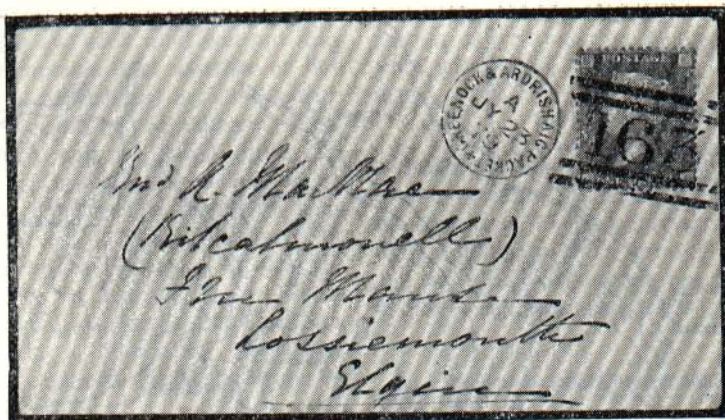 GREENOCK & ARDRISHAIG PACKET
A
JY 23
79
POSTAGE
162
Mrs A. MacRae
(Kilcalmonell)
Free Manse
Lossiemouth
Elgin